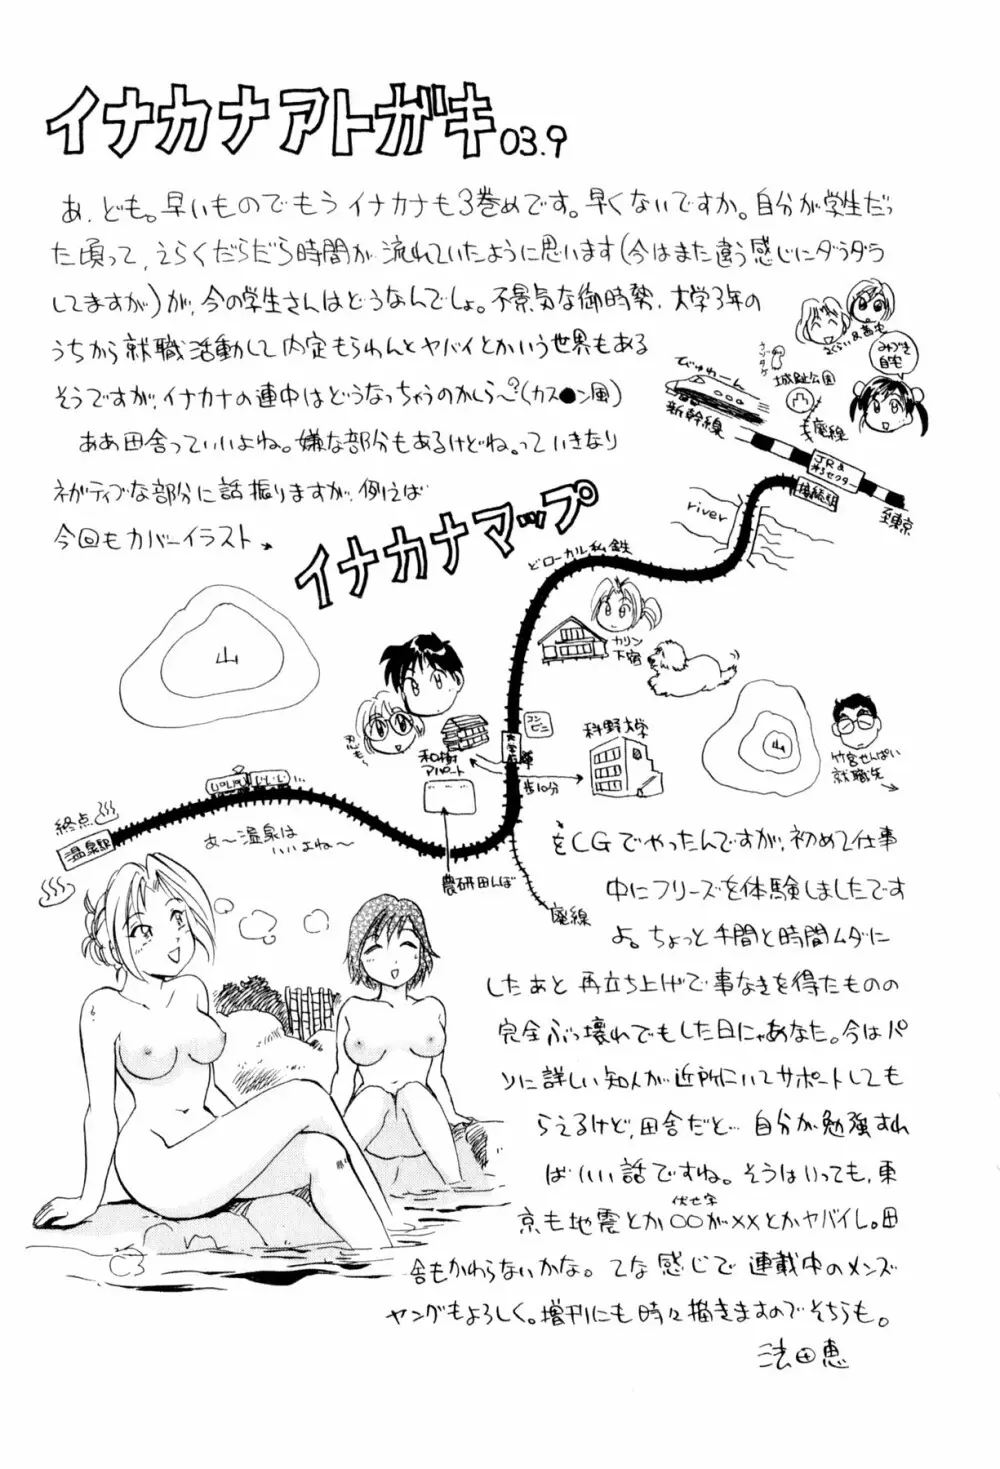 イナカナアトガキ 03.9
あ、ども。早いものでもうイナカナも3巻めです。早くないですか。自分が学生だっ
た頃って、えらくだらだら時間が流れていたように思います(今はまた違う感じにダラダラ
してますが)が、今の学生さんはどうなんでしょ。不景気な御時勢、大学3年の
うちから就職活動して内定もらわんとヤバイとかいう世界もある
そうですが、イナカナの連中はどうなっちゃうのかしら〜?(カス●ン風)
ああ田舎っていいよね。嫌な部分もあるけどね。っていきなり
ネガティブな部分に話振りますが、例えば
今回もカバーイラスト
さくらい&高中
みづき
自宅
城趾公園
びゅわーん
新幹線
廃線
JR&
第3セクター
接続駅
至東京
イナカナマップ
river
どローカル私鉄
カリン
下宿
山
コンビニ
科野大学
和樹
アパート
歩10分
山
竹宮せんぱい
就職先
終点
温泉駅
あ〜温泉は
いいよね〜
農研田んぼ
廃線
をCGでやったんですが、初めて仕事
中にフリーズを体験しましたです
よ。ちょっと手間と時間ムダに
したあと再立ち上げで事なきを得たものの
完全ぶっ壊れでもした日にゃあなた。今はパ
ソに詳しい知人が近所にいてサポートしても
らえるけど、田舎だと…自分が勉強すれ
ばいい話ですね。そうはいっても、東
伏せ字
京も地震とか○○が××とかヤバイし。田
舎もかわらないかな。てな感じで連載中のメンズ
ヤングもよろしく。増刊にも時々描きますのでそちらも。
法田恵